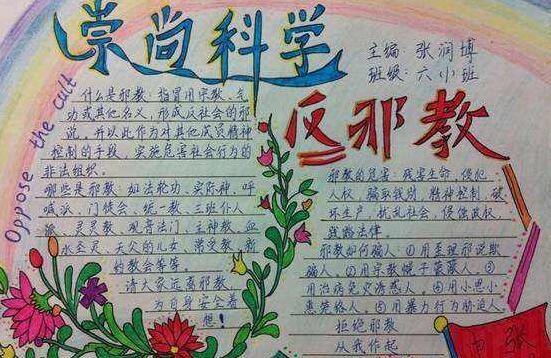 崇尚科学
主编 张润博
班级:六小班
Oppose the cult
什么是邪教:指冒用宗教、气
功或其他名义,形成反社会的邪
说,并以此作为对其他成员精神
控制的手段,实施危害社会行为的
非法组织。
哪些是邪教:如法轮功、实际神、呼
喊派、门徒会、统一教、三班仆人
派、灵灵教、观音法门、主神教、血
水圣灵、天父的儿女、常受教、新
的教会等等。
请大家远离邪教,
为自身安全着
想!
反邪教
邪教的危害:残害生命,侵犯
人权,骗取钱财,精神控制,破
坏生产,扰乱社会,侵蚀政权,
践踏法律。
邪教如何骗人:①用歪理邪说欺
骗人,②用宗教幌子蒙蔽人,③
用治病免灾诱惑人,④用小恩小
惠笼络人,⑤用暴力行为胁迫人。
拒绝邪教
从我作起